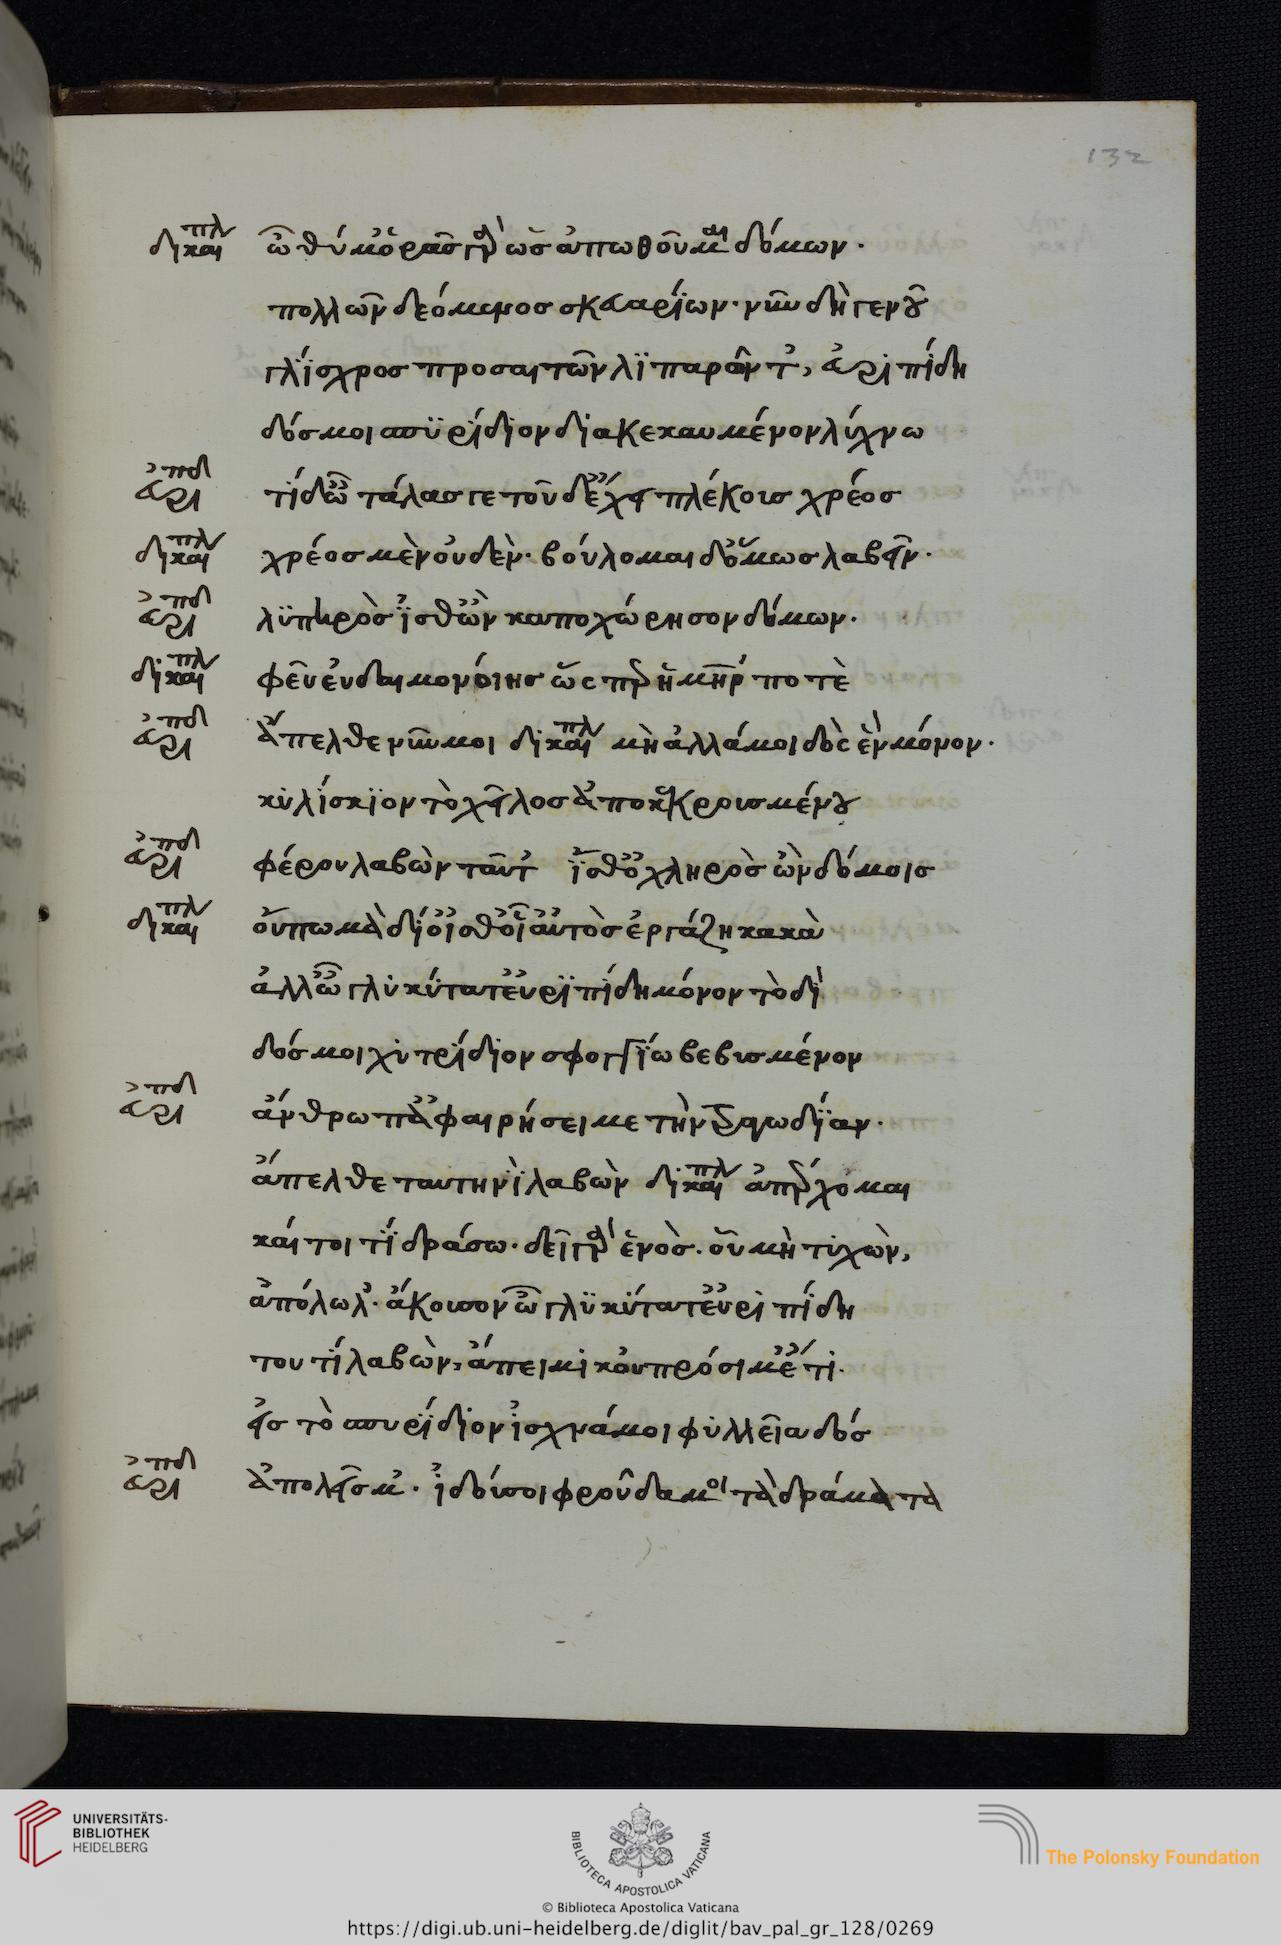 132
δικαιπλ ὦ θύμ' ὁρᾶς γὰρ ὡς ἀπωθοῦμαι δόμων·
πολλῶν δεόμενος σκευαρίων· νῦν δὴ γενοῦ
γλίσχρος προσαιτῶν λιπαρῶν τ', εὐριπίδη
δός μοι σπυρίδιον διακεκαυμένον λύχνω
εὐριπδ τί δ' ὦ τάλας γε τοῦδ' ἔχεις πλέκους χρέος
δικαιπλ χρέος μὲν οὐδὲν· βούλομαι δ' ὅμως λαβεῖν·
εὐριπδ λυπηρὸς ἴσθ' ὢν καποχώρησον δόμων·
δικαιπλ φεῦ εὐδαιμονοίης ὥσπερ ἡ μηρ ποτὲ
εὐριπδ ἄπελθε νῦν μοι δικαιπλ μὴ ἀλλά μοι δὸς ἓν μόνον·
κυλίσκιον τὸ χεῖλος ἀποκεκρουσμένου
εὐριπδ φέρου λαβὼν ταῦτ' ἴσθ' ὀχληρὸς ὢν δόμοις
δικαιπλ οὔπω μὰ δί' οἶσθ' οἷ' αὐτὸς ἐργάζη κακὰ
ἀλλ' ὦ γλυκύτατ' εὐριπίδη μόνον τὸ δὶ
δός μοι χυτρίδιον σφογγίω βεβυσμένον
εὐριπδ ἄνθρωπ' ἀφαιρήσει με τὴν τραγωδίαν·
ἄπελθε ταυτηνὶ λαβὼν δικαιπλ ἀπέρχομαι
κάιτοι τί δράσω· δεῖ γὰρ ἑνὸς· οὗ μὴ τυχὼν,
ἀπόλωλ'· ἄκουσον ὦ γλυκύτατ' εὐριπίδη
τουτί λαβὼν, ἄπειμι κοὐ πρόσιμ' ἔτι·
εἰς τὸ σπυρίδιον ἰσχνά μοι φυλλεῖα δός
εὐριπδ ἀπολεῖς μ'· ἰδού σοι φροῦδα μοι τὰ δράματα
UNIVERSITÄTS-
BIBLIOTHEK
HEIDELBERG
BIBLIOTECA APOSTOLICA VATICANA
The Polonsky Foundation
© Biblioteca Apostolica Vaticana
https://digi.ub.uni-heidelberg.de/diglit/bav_pal_gr_128/0269